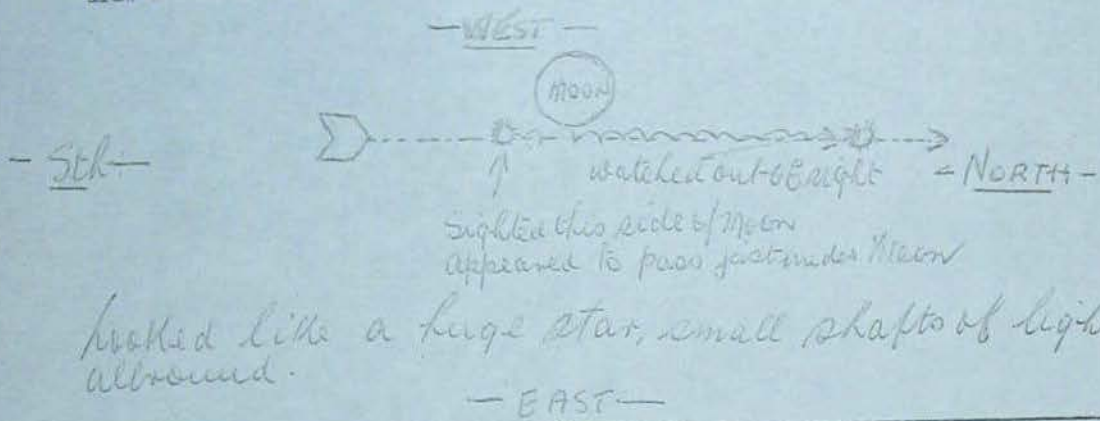 - WEST -
MOON
- Sth -
watched out of sight
- NORTH -
Sighted this side of Moon
appeared to pass just under Moon
Looked like a huge star, small shafts of ligh
all round.
- EAST -